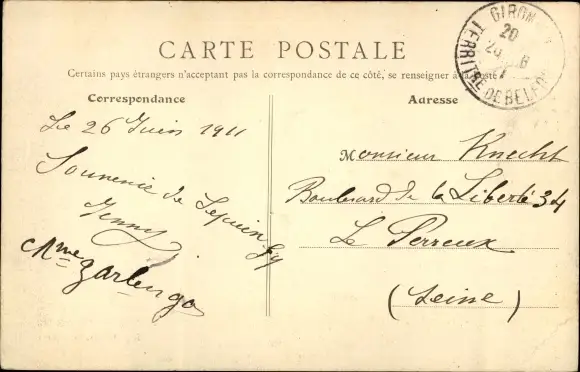 CARTE POSTALE
Certains pays étrangers n'acceptant pas la correspondance de ce côté, se renseigner à la poste
GIROM
20
26 - 6
TERRITRE DE BELFORT
Correspondance
Le 26 Juin 1911
Souvenir de
Jenny
Mme Zarlingo
Adresse
Monsieur Knecht
Boulevard de la Liberté 34
Le Perreux
(Seine)